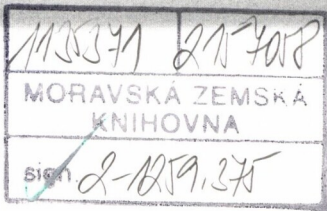 1135371 2157058
MORAVSKÁ ZEMSKÁ
KNIHOVNA
sign. 2-1259.375